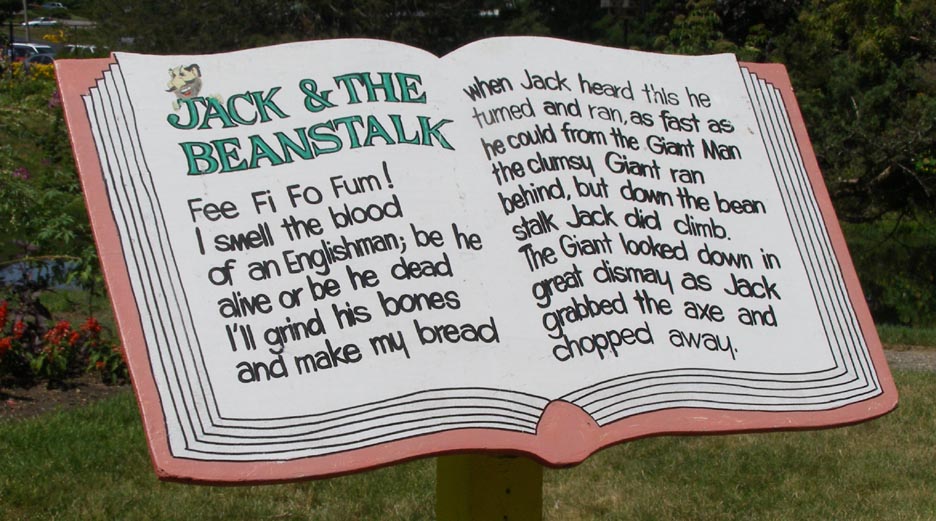 JACK & THE
BEANSTALK
Fee Fi Fo Fum!
I smell the blood
of an Englishman; be he
alive or be he dead
I'll grind his bones
and make my bread
when Jack heard this he
turned and ran, as fast as
he could from the Giant Man
the clumsy Giant ran
behind, but down the bean
stalk Jack did climb.
The Giant looked down in
great dismay as Jack
grabbed the axe and
chopped away.